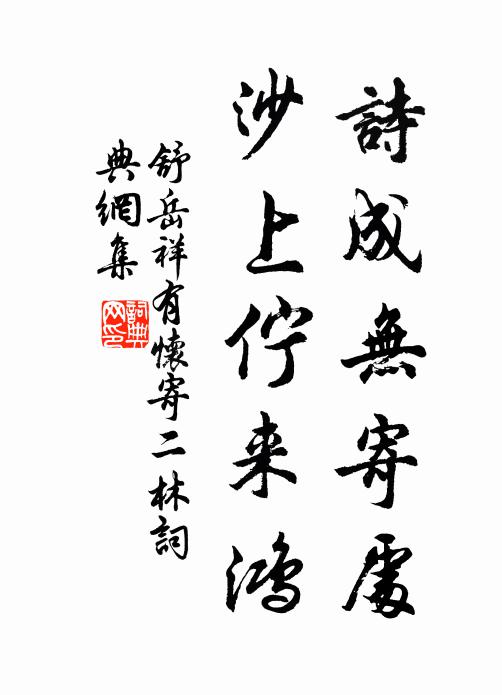 詩成無寄處
沙上佇来鴻
舒岳祥有懷寄二林詞
典網集
詞典
网印